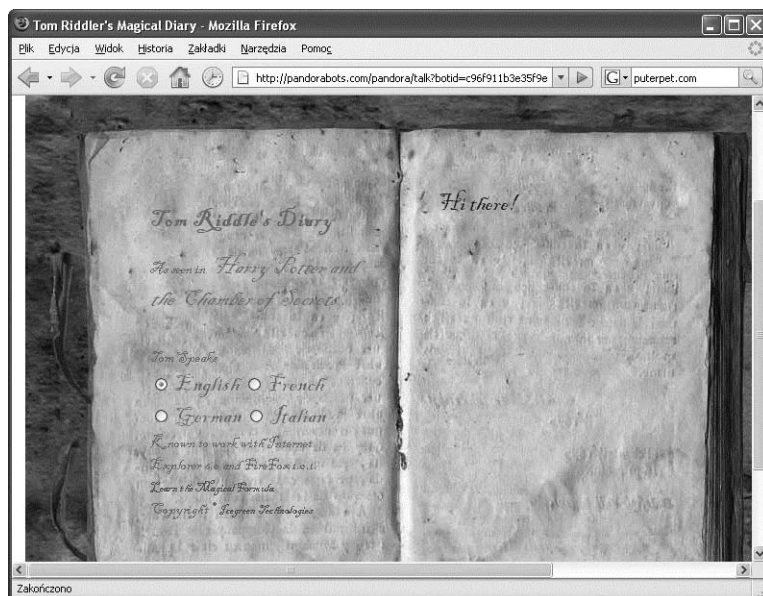 Tom Riddler's Magical Diary - Mozilla Firefox
Plik Edycja Widok Historia Zakładki Narzędzia Pomoc
http://pandorabots.com/pandora/talk?botid=c96f911b3e35f9e
G puterpet.com
Hi there!
Tom Riddle's Diary
As seen in 'Harry Potter and
the Chamber of Secrets'.
Tom Speaks
English French
German Italian
Known to work with Internet
Explorer 6.0 and FireFox 1.0.1.
Learn the Magical Formula
Copyright Icegreen Technologies
Zakończono